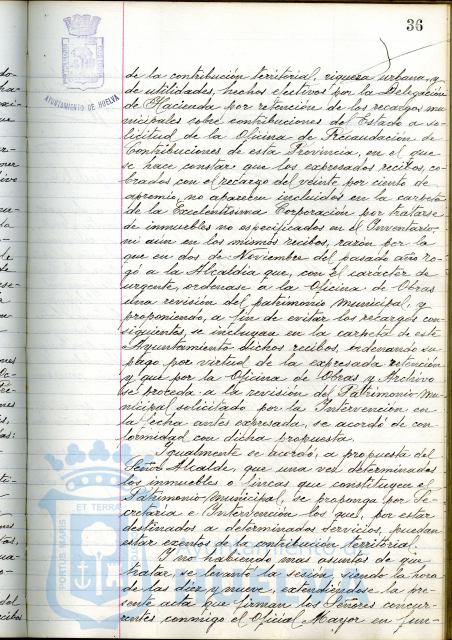 36
AYUNTAMIENTO DE HUELVA
de la contribución territorial, riqueza urbana, y
de utilidades, hechos efectivos por la Delegación
de Hacienda por retención de los recargos mu-
nicipales sobre contribuciones del Estado a so-
licitud de la Oficina de Recaudación de
Contribuciones de esta Provincia, en el que
se hace constar que los expresados recibos, co-
brados con el recargo del veinte por ciento de
apremio, no aparecen incluidos en la carpeta
de la Excelentísima Corporación por tratarse
de inmuebles no especificados en el Inventario,
ni aun en los mismos recibos, razón por la
que en dos de Noviembre del pasado año ro-
gó a la Alcaldía que, con el carácter de
urgente, ordenase a la Oficina de Obras
una revisión del patrimonio municipal, y
proponiendo, a fin de evitar los recargos con-
siguientes, se incluyan en la carpeta de este
Ayuntamiento dichos recibos, ordenando su
pago por virtud de la expresada retención
y que por la Oficina de Obras y Archivo
se proceda a la revisión del Patrimonio mu-
nicipal solicitado por la Intervención en
la fecha antes expresada, se acordó de con-
formidad con dicha propuesta.
Igualmente se acordó, a propuesta del
Señor Alcalde, que una vez determinados
los inmuebles o fincas que constituyen el
Patrimonio municipal, se proponga por Se-
cretaría e Intervención los que, por estar
destinados a determinados servicios, puedan
estar exentos de la contribución territorial.
Y no habiendo mas asuntos de que
tratar, se levantó la sesión, siendo la hora
de las diez y nueve, extendiéndose la pre-
sente acta que firman los Señores concur-
rentes conmigo el Oficial Mayor en fun-
PORTUS MARIS ET TERRAE
Ayuntamiento de
HUELVA